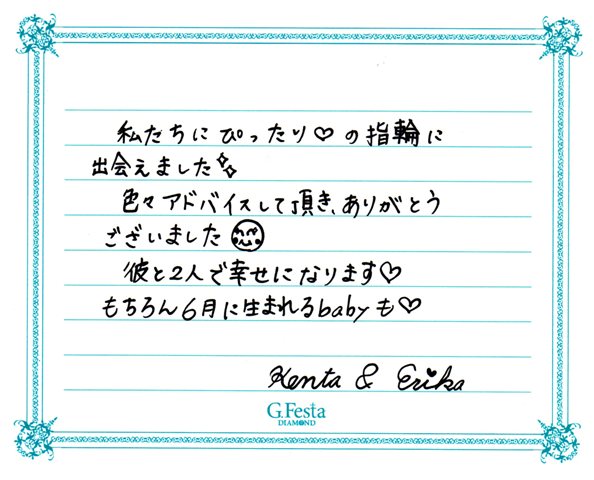 私たちにぴったり♡の指輪に
出会えました✨
色々アドバイスして頂き、ありがとう
ございました
彼と2人で幸せになります♡
もちろん6月に生まれるbabyも♡
Kenta & Erika
G.Festa
DIAMOND